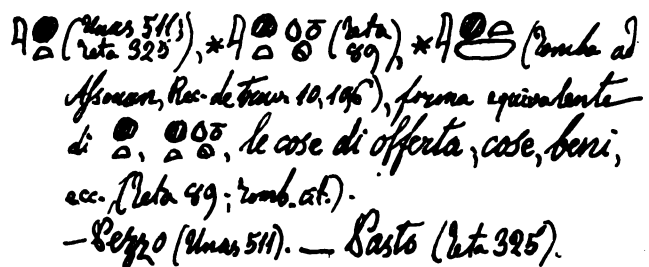 𓇋𓐍𓏏 (Unas 511; Teta 325), *𓇋𓐍𓏏 (Teta 89), *𓇋𓐍𓏏 (tomba ad
Assouan, Rec. de Trav. 10, forma equivalente
di 𓐍𓏏, 𓐍𓏏, le cose di offerta, cose, beni,
ecc., (Teta 89; tomb. cit.).
— Pezzo (Unas 511). — Pasto (Teta 325).